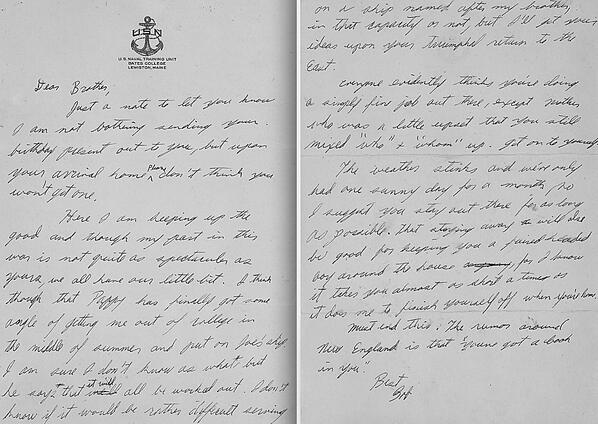 USN
U.S. NAVAL TRAINING UNIT
BATES COLLEGE
LEWISTON, MAINE
Dear Brother,
Just a note to let you know
I am not bothering sending your
birthday present out to you, but upon
your arrival home please don't think you
won't get one.
Here I am keeping up the
good and though my part in this
war is not quite as spectacular as
yours, we all have our little bit. I think
though that Pappy has finally got some
angle of getting me out of college in
the middle of summer and put on Joe's ship
I am sure I don't know as what but
he says that it will all be worked out. I don't
know if it would be rather difficult serving
on a ship named after my brother,
in that capacity or not, but I'll get your
ideas upon your triumphal return to the
East.
Everyone evidently thinks you're doing
a simply fine job out there, except mother
who was a little upset that you still
mixed "who" & "whom" up. Get on to yourself.
The weather stinks and we've only
had one sunny day for a month so
I suggest you stay out there for as long
as possible. that staying away will also
be good for keeping you a faired headed
boy around the house, for I know
it takes you almost as short a time as
it does me to finish yourself off when you're home.
Must end this: The rumor around
New England is that "you've got a book
in you."
Best